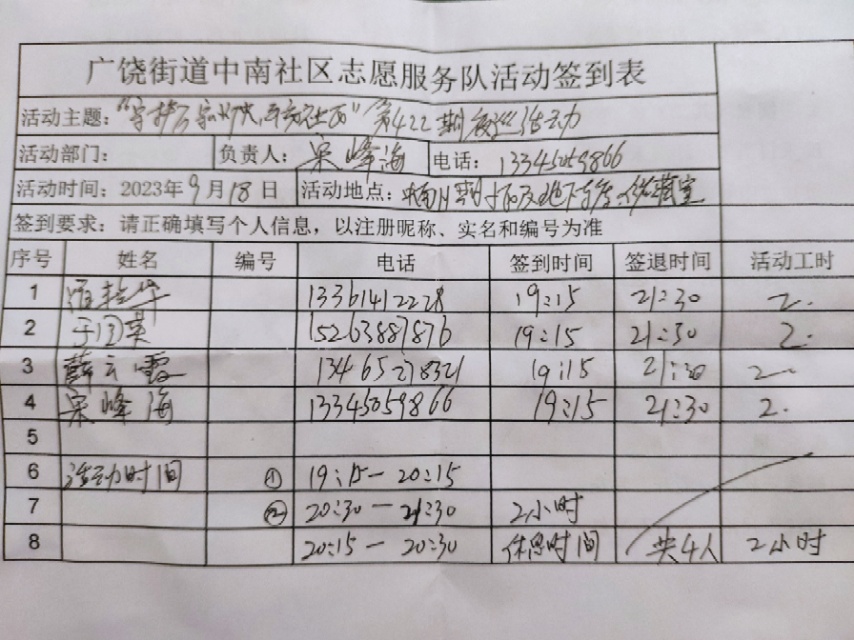 广饶街道中南社区志愿服务队活动签到表
活动主题："守护万家灯火，平安社区"第422期夜巡活动
活动部门： 负责人：宋峰海 电话：13345059866
活动时间：2023年9月18日 活动地点：
签到要求：请正确填写个人信息，以注册昵称、实名和编号为准
序号 姓名 编号 电话 签到时间 签退时间 活动工时
1 13361412228 19:15 21:30 2.
2 于国英 15263887876 19:15 21:30 2.
3 薛云霞 13465278321 19:15 21:30 2.
4 宋峰海 13345059866 19:15 21:30 2.
5
6 活动时间 ① 19:15-20:15
7 ② 20:30-21:30 2小时
8 20:15-20:30 休息时间 共4人 2小时